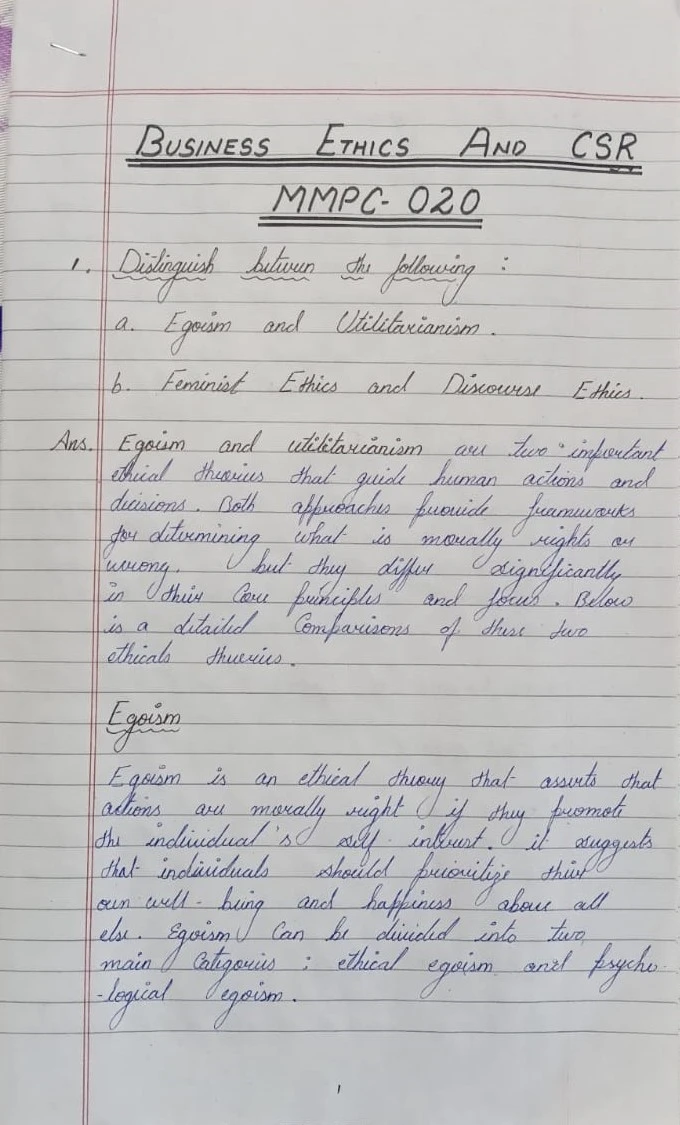 BUSINESS ETHICS AND CSR
MMPC- 020
1. Distinguish between the following :
a. Egoism and Utilitarianism.
b. Feminist Ethics and Discourse Ethics.
Ans. Egoism and utilitarianism are two important
ethical theories that guide human actions and
decisions. Both approaches provide frameworks
for determining what is morally rights or
wrong. but they differ significantly
in their Core principles and focus. Below
is a detailed Comparisons of these two
ethicals theories.
Egoism
Egoism is an ethical theory that asserts that
actions are morally right if they promote
the individual's self-interest. it suggests
that individuals should prioritize their
own well-being and happiness above all
else. Egoism Can be divided into two
main Categories : ethical egoism and psycho-
-logical egoism.
1